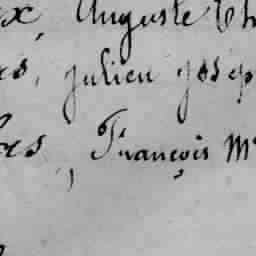 x, Auguste Th
s, Julien Josep
es, François M